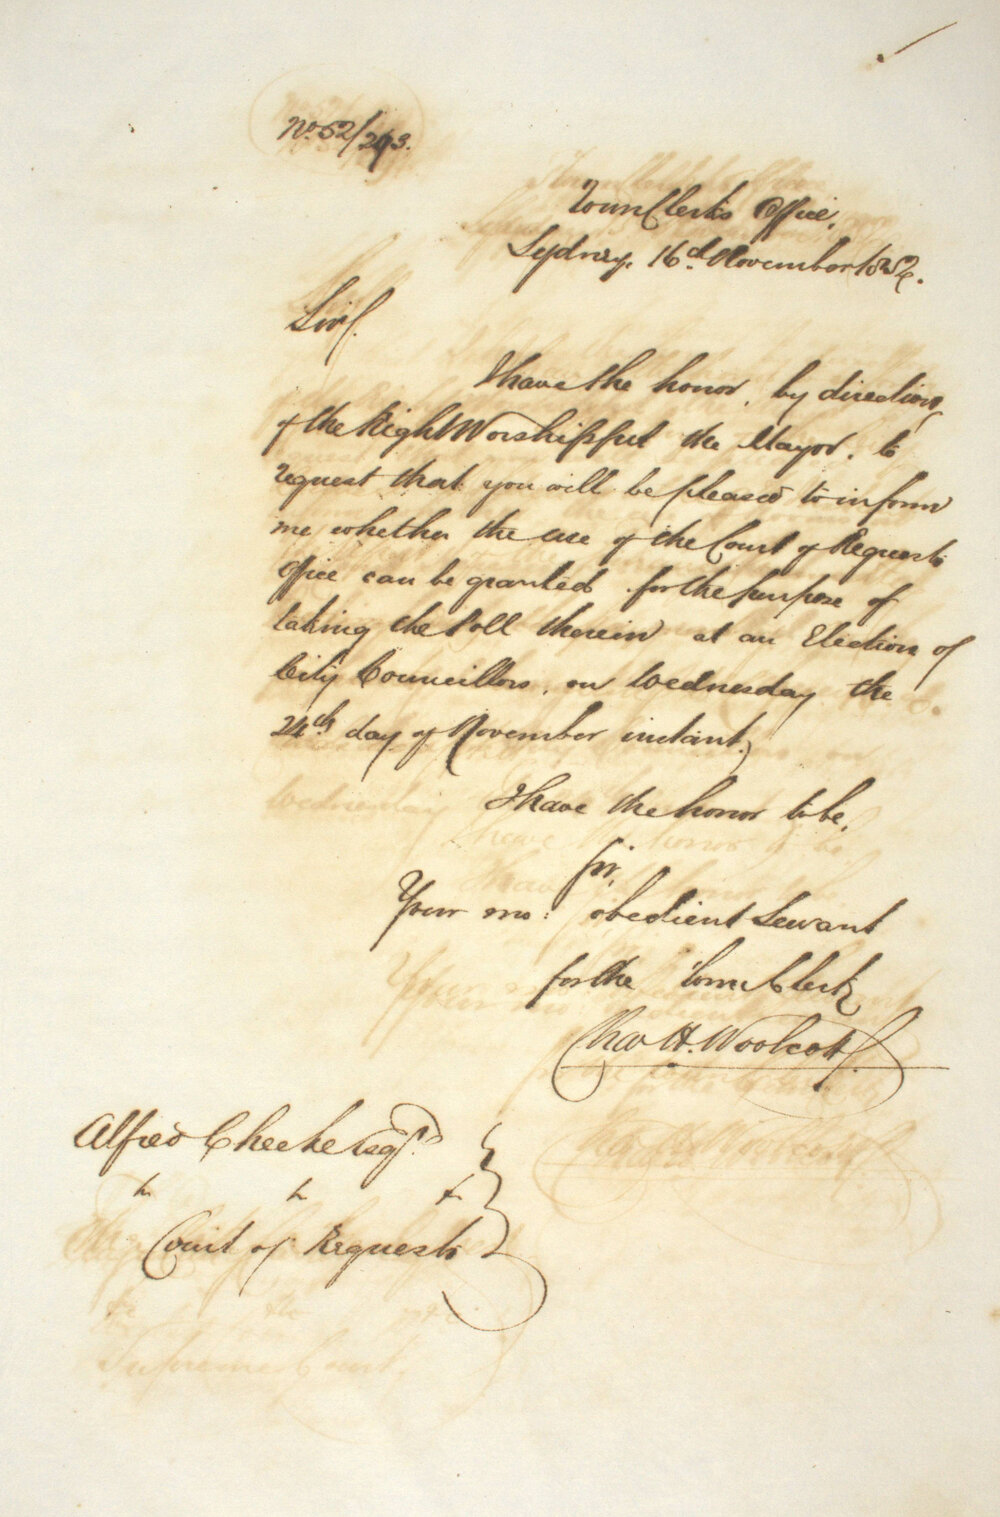 No. 52/293.
Town Clerk's Office,
Sydney, 16th November 1852.
Sir,
I have the honor, by direction
of the Right Worshipful the Mayor, to
request that you will be pleased to inform
me whether the use of the Court of Requests
Office can be granted for the purpose of
taking the Poll therein at an Election of
City Councillors, on Wednesday the
24th day of November instant.
I have the honor to be,
Sir,
Your mo: obedient Servant
for the Town Clerk
Chas H. Woolcott
Alfred Cheeke Esqre.
&c &c &c
Court of Requests
Supreme Court